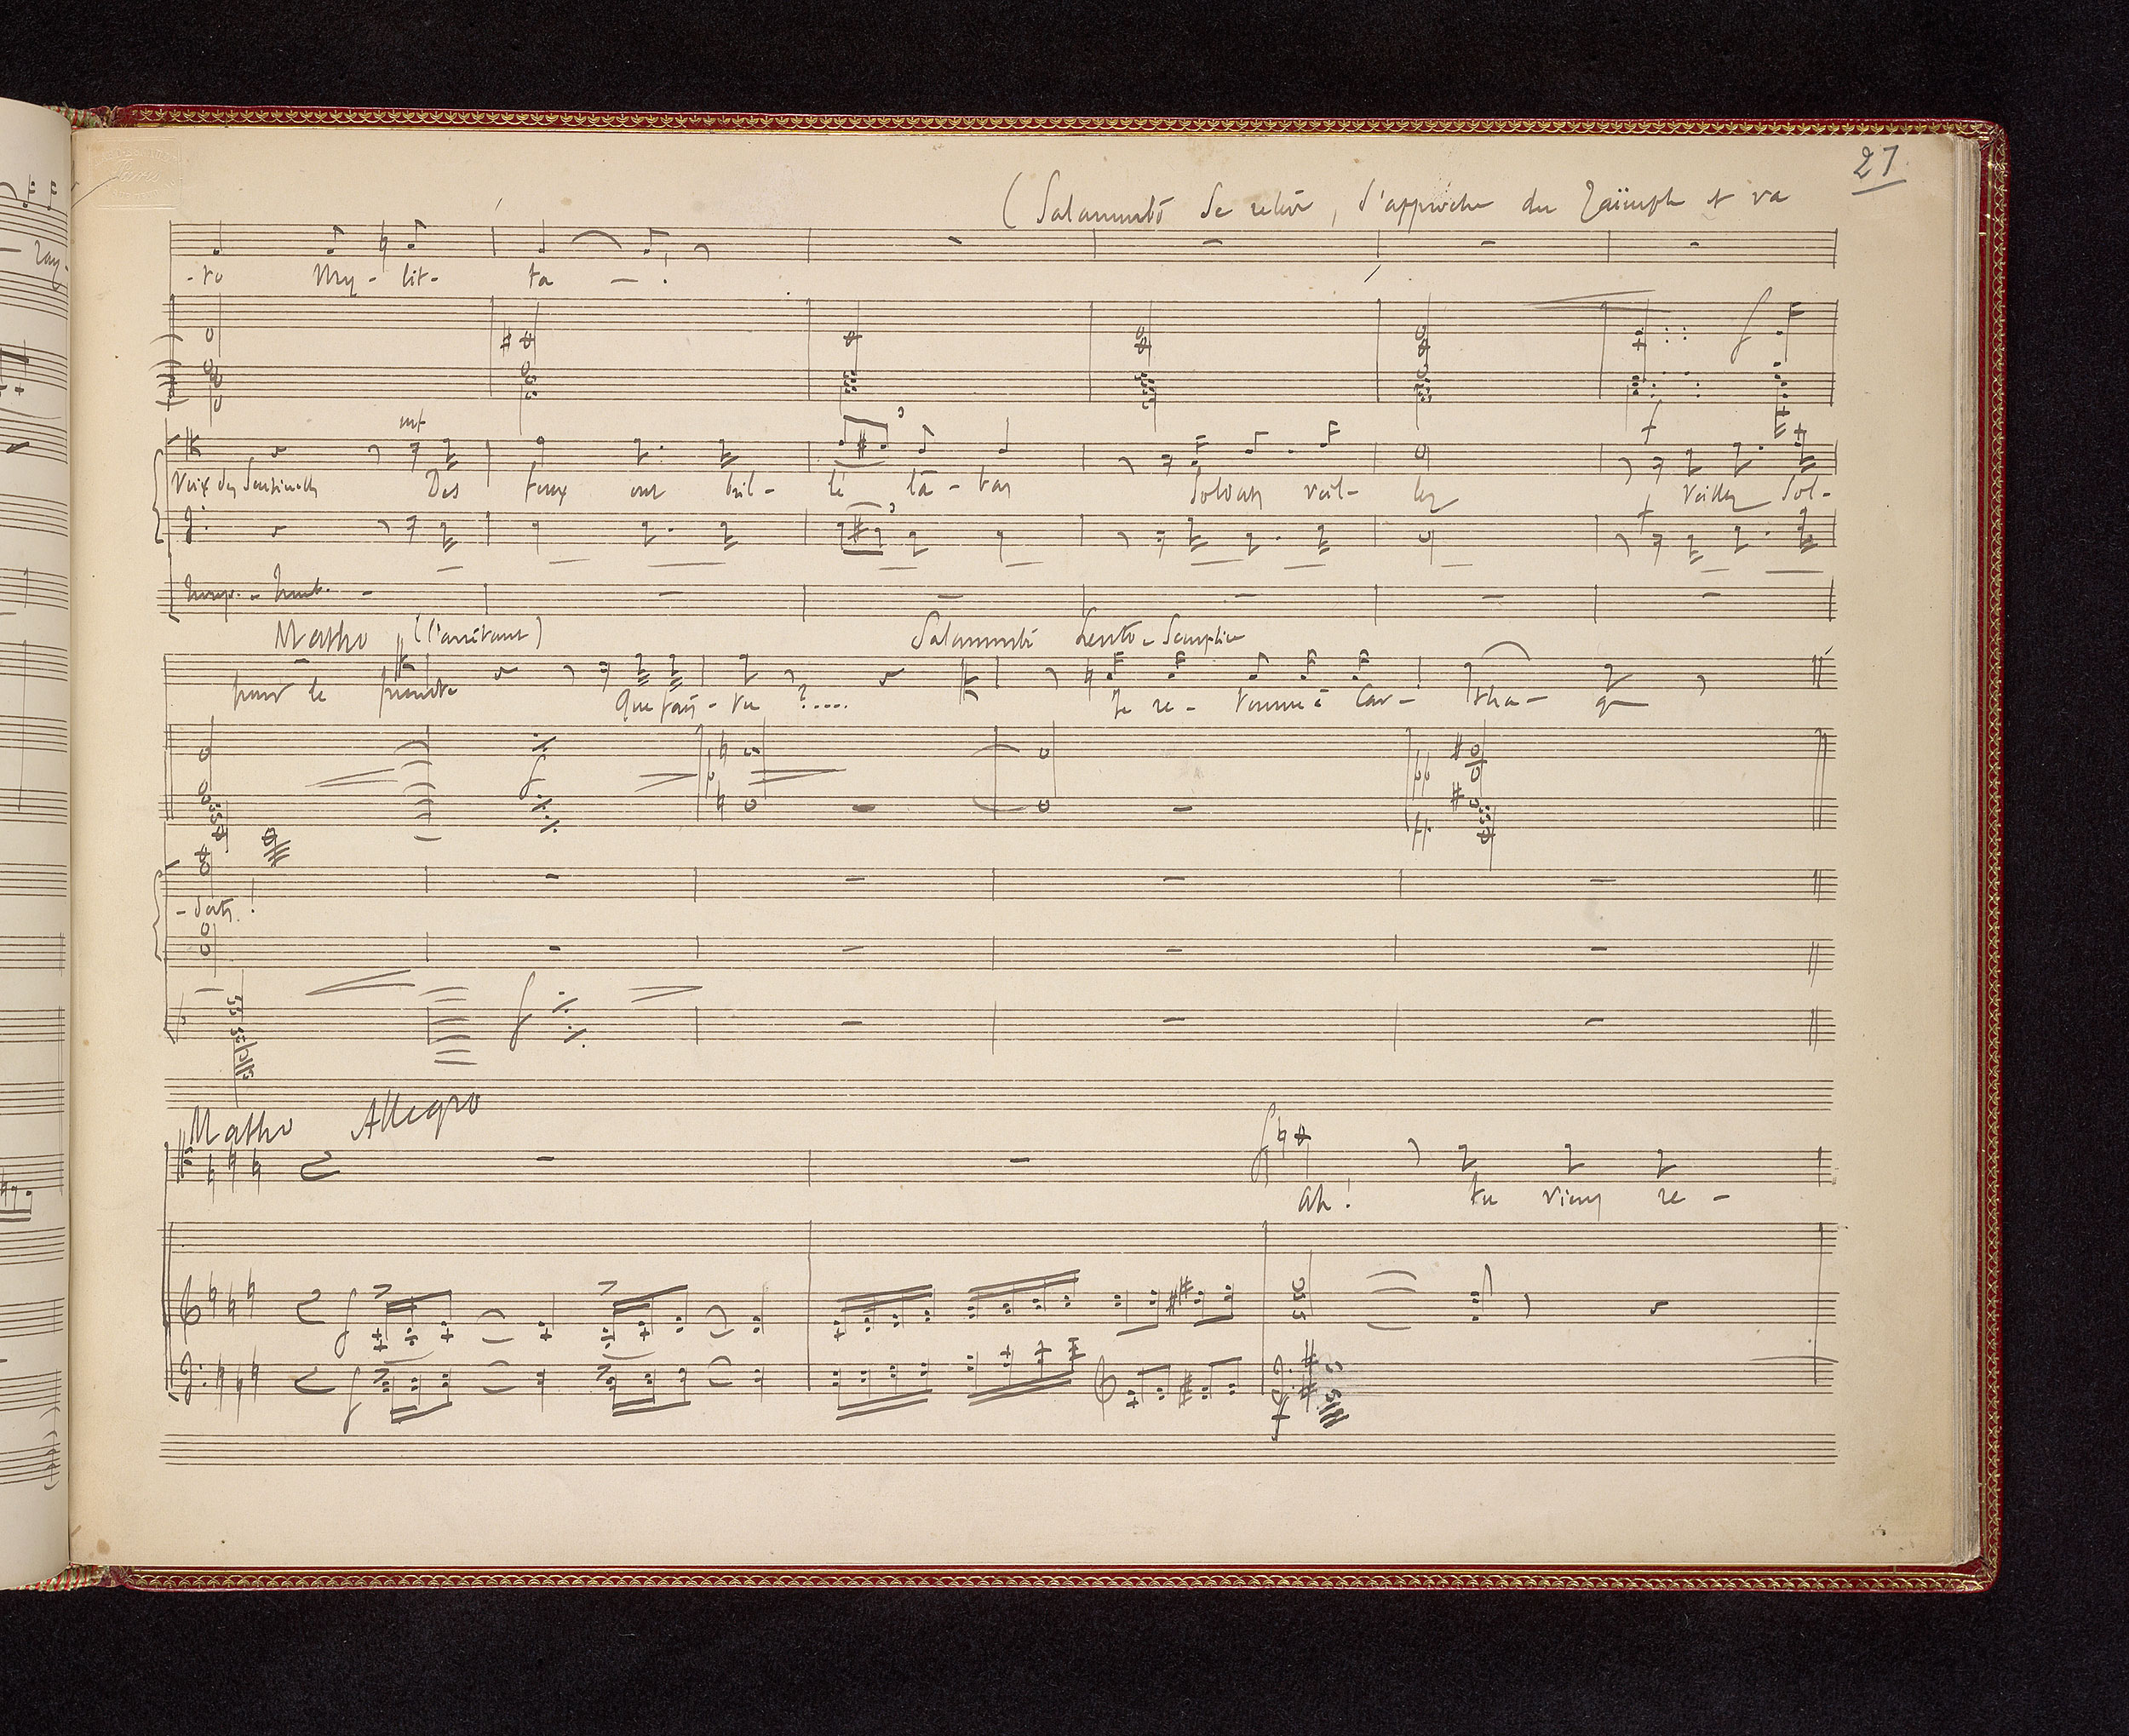 27
(Salammbô se relève, s'approche du Zaïmph et va
-to My- lit- ta — !
mf
Voix des Sentinelles Des feux ont bril- lé là-bas Soldats veil- lez Veillez Sol-
Matho (l'arrêtant) Salammbô Lento - Semplice
pour le prendre Que fais-tu ?.... Je re- tourne à Car- tha- ge
pp
-dats !
Matho Allegro
Ah ! tu viens re -